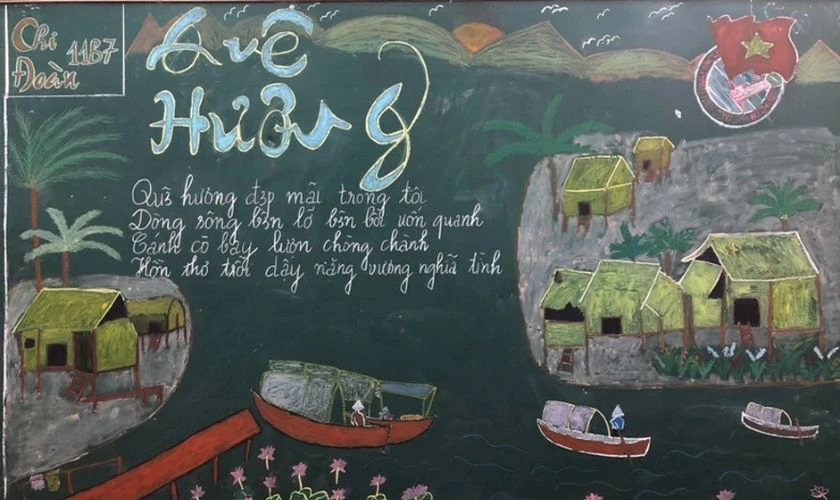 Chi
Đoàn 11B7
Quê
Hương
Quê hương đẹp mãi trong tôi
Dòng sông bên lở bên bồi uốn quanh
Cánh cò bay lượn chòng chành
Hồn thơ trỗi dậy nặng vương nghĩa tình